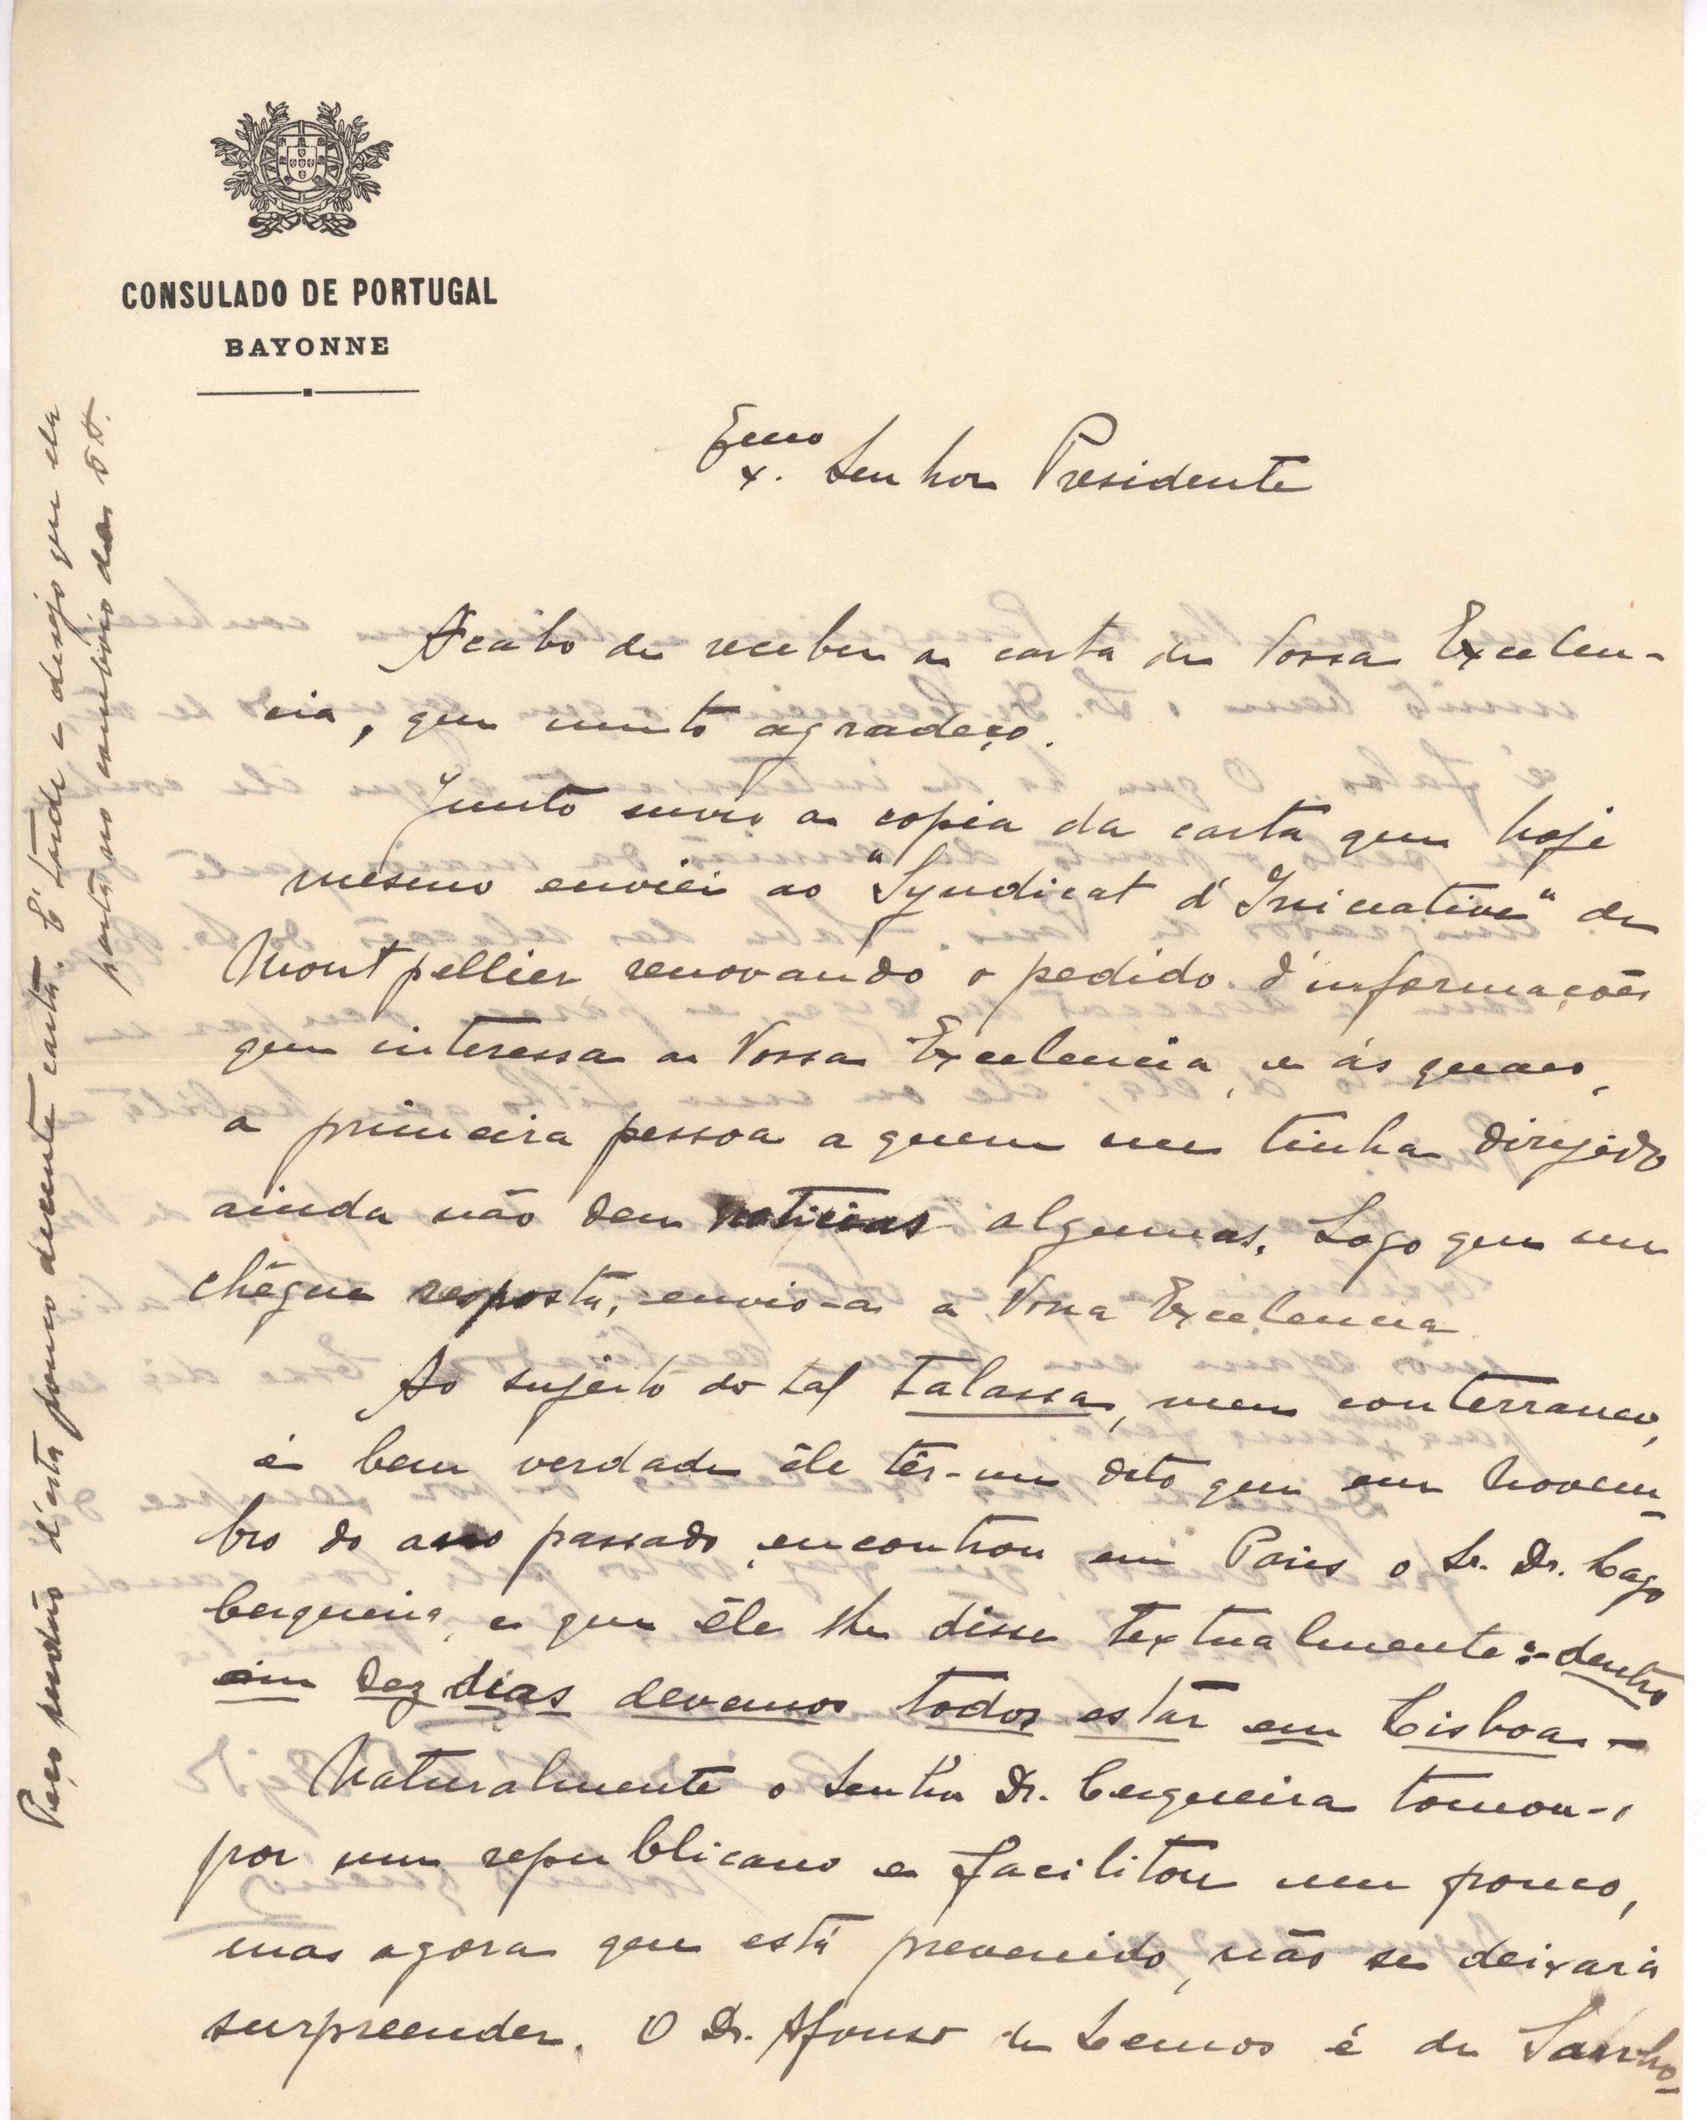 CONSULADO DE PORTUGAL
BAYONNE
Exmo. Senhor Presidente
Acabo de receber a carta de Vossa Excelen-
cia, que muito agradeço.
Junto envio a copia da carta que hoje
mesmo enviei ao "Syndicat d'Iniciative" de
Montpellier renovando o pedido d'informações
que interessa a Vossa Excelencia, e ás quaes,
a primeira pessoa a quem me tinha dirijido
ainda não deu noticias algumas. Logo que me
chêgue resposta, envio-a a Vossa Excelencia
Ao sujeito do tal talassa, meu conterraneo,
é bem verdade êle têr-me dito que em Novem-
bro do ano passado encontrou em Paris o Sr. Dr.
Cerqueira, e que êle lhe disse textualmente:-dentro
em dez dias devemos todos estar em Lisboa-
Naturalmente o Senhor Dr. Cerqueira tomou-o
por um republicano e facilitou um pouco,
mas agora que está prevenido, não se deixará
surpreender. O Dr. Afonso de Lemos é de
Peço perdão d'esta pouco decente carta. É tarde e desejo que ela
parta no comboio das